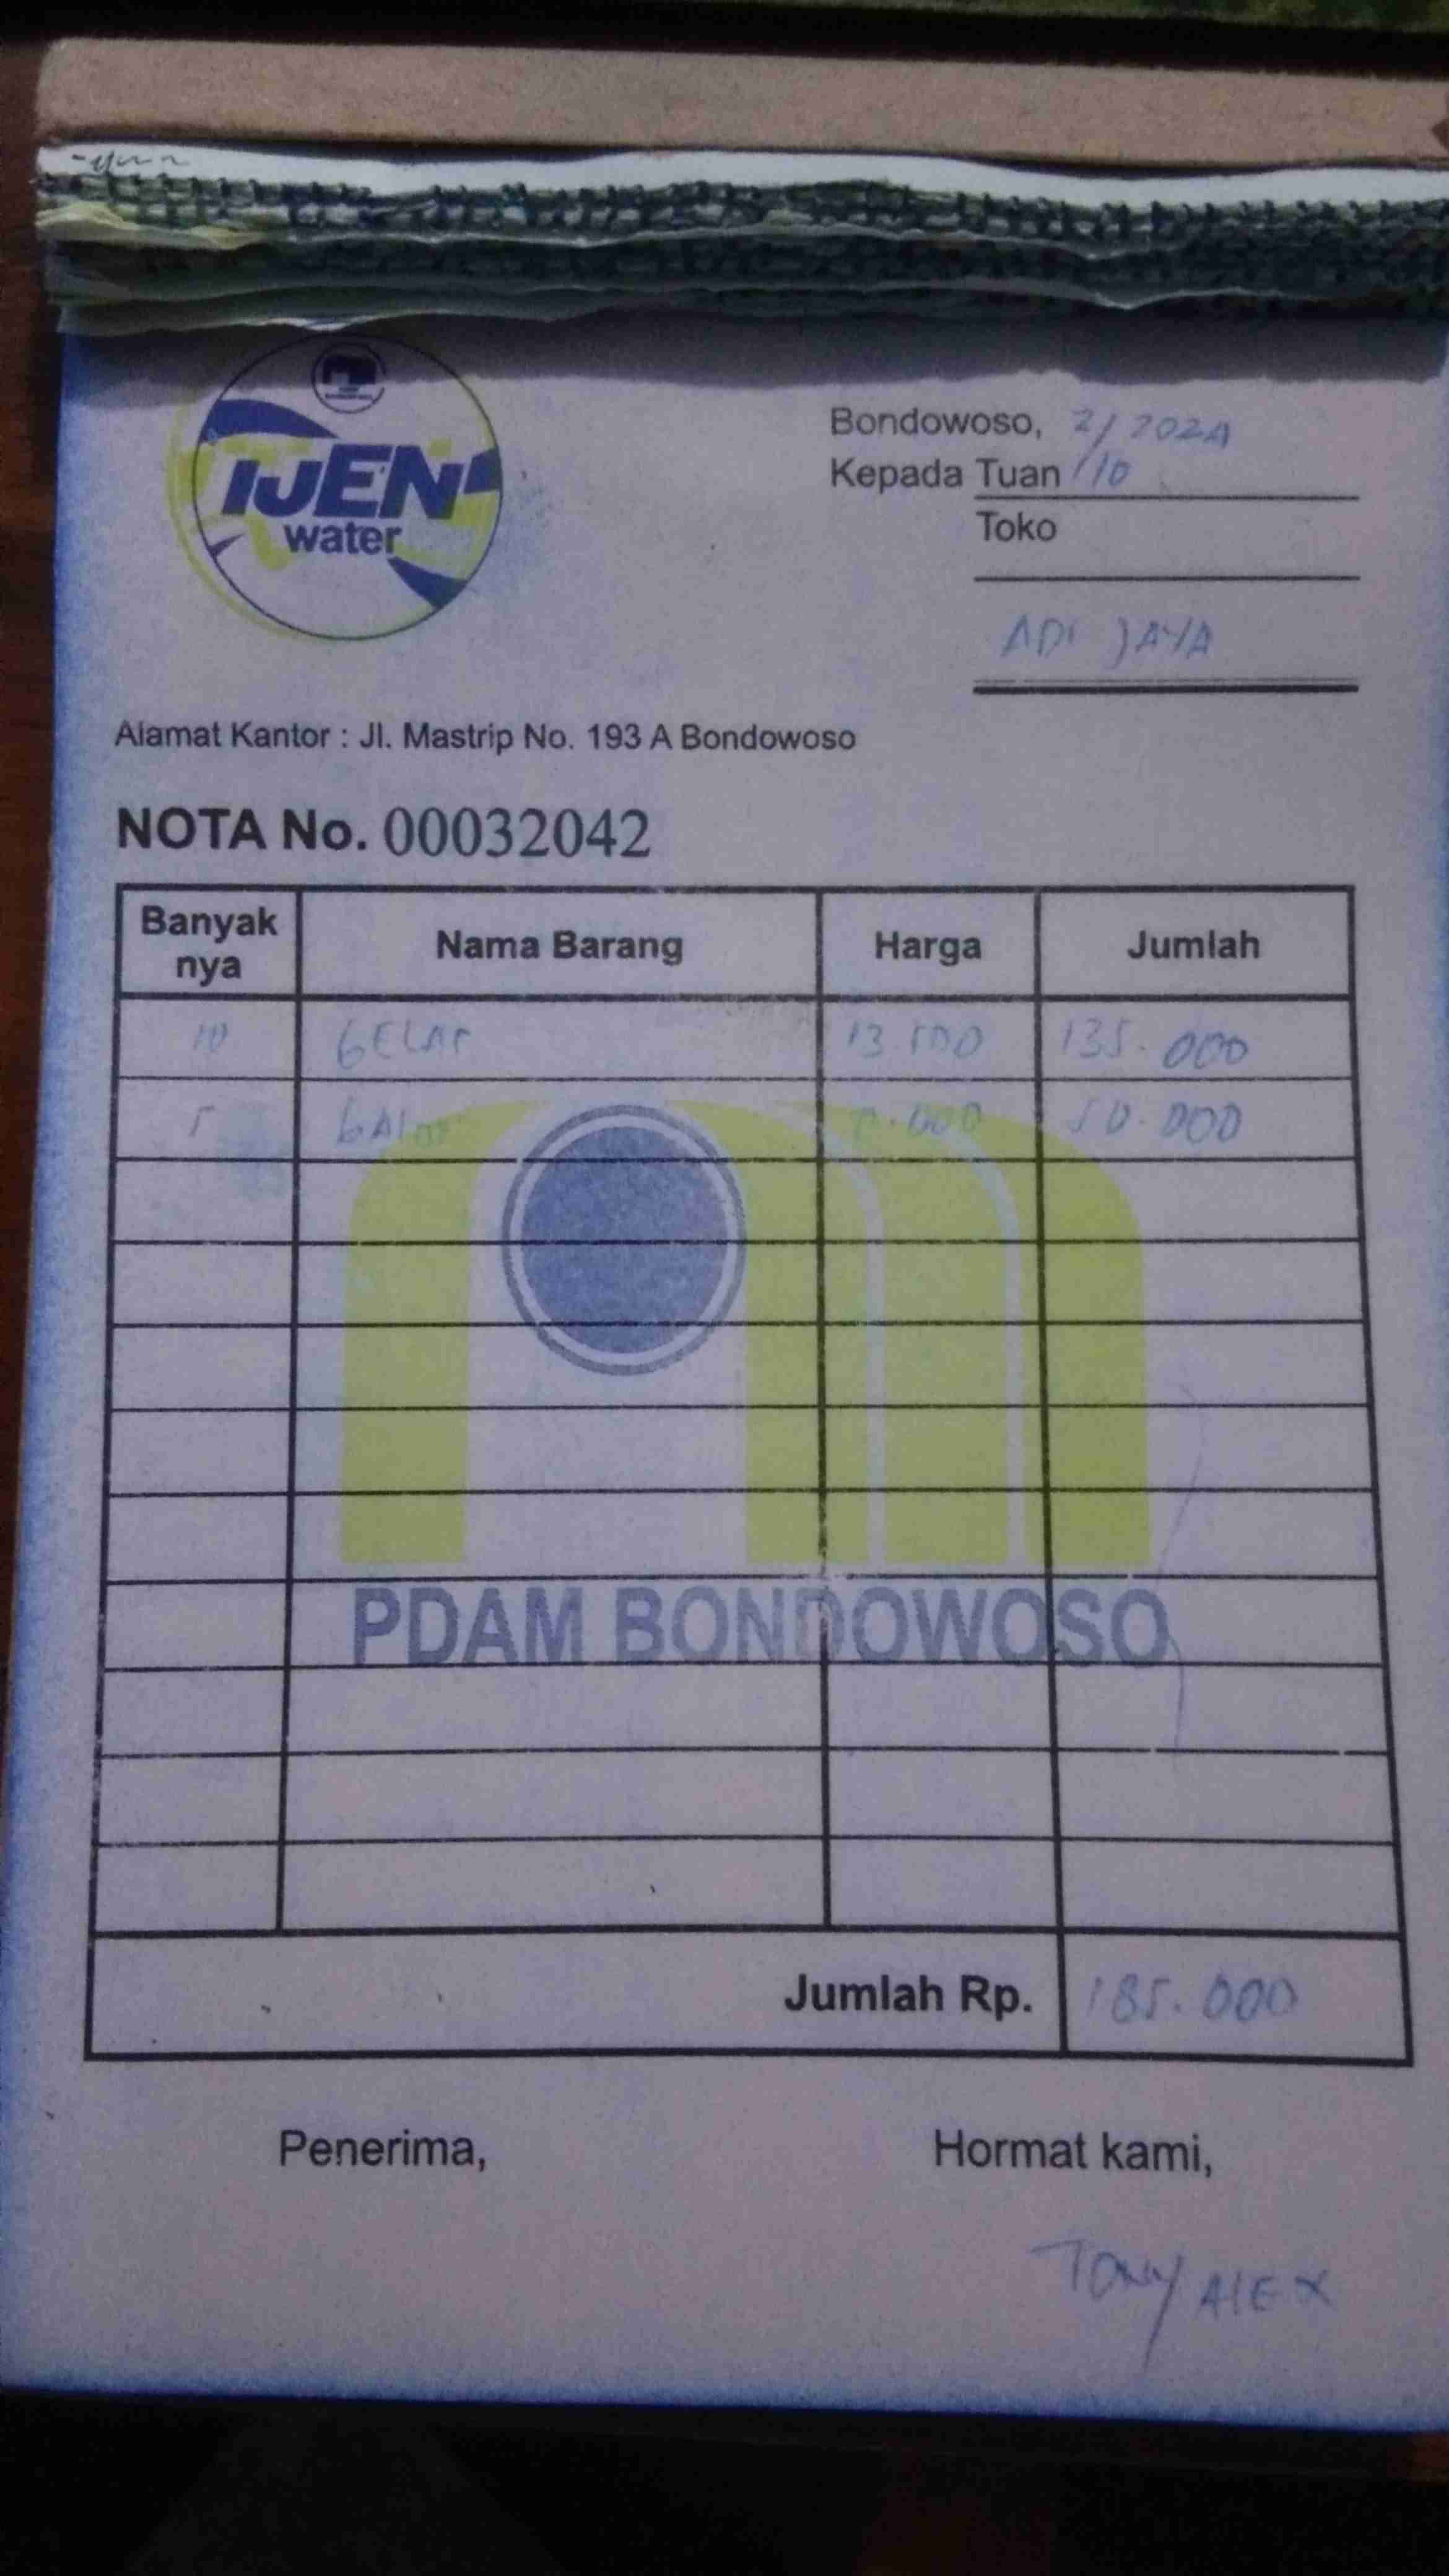 IJEN
water
Bondowoso, 2/10 2024
Kepada Tuan
Toko
ADI JAYA
Alamat Kantor : Jl. Mastrip No. 193 A Bondowoso
NOTA No. 00032042
Banyak nya Nama Barang Harga Jumlah
10 GELAS 13.500 135.000
5 50.000
PDAM BONDOWOSO
Jumlah Rp. 185.000
Penerima, Hormat kami,
Tony ALEX